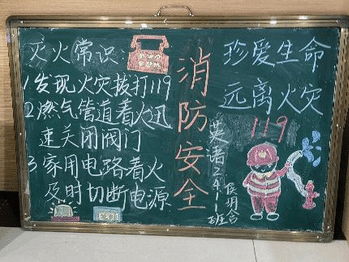 灭火常识
1发现火灾拨打119
2燃气管道着火迅
速关闭阀门
3家用电路着火
及时切断电源
消防安全
英语2411班
珍爱生命
远离火灾
119